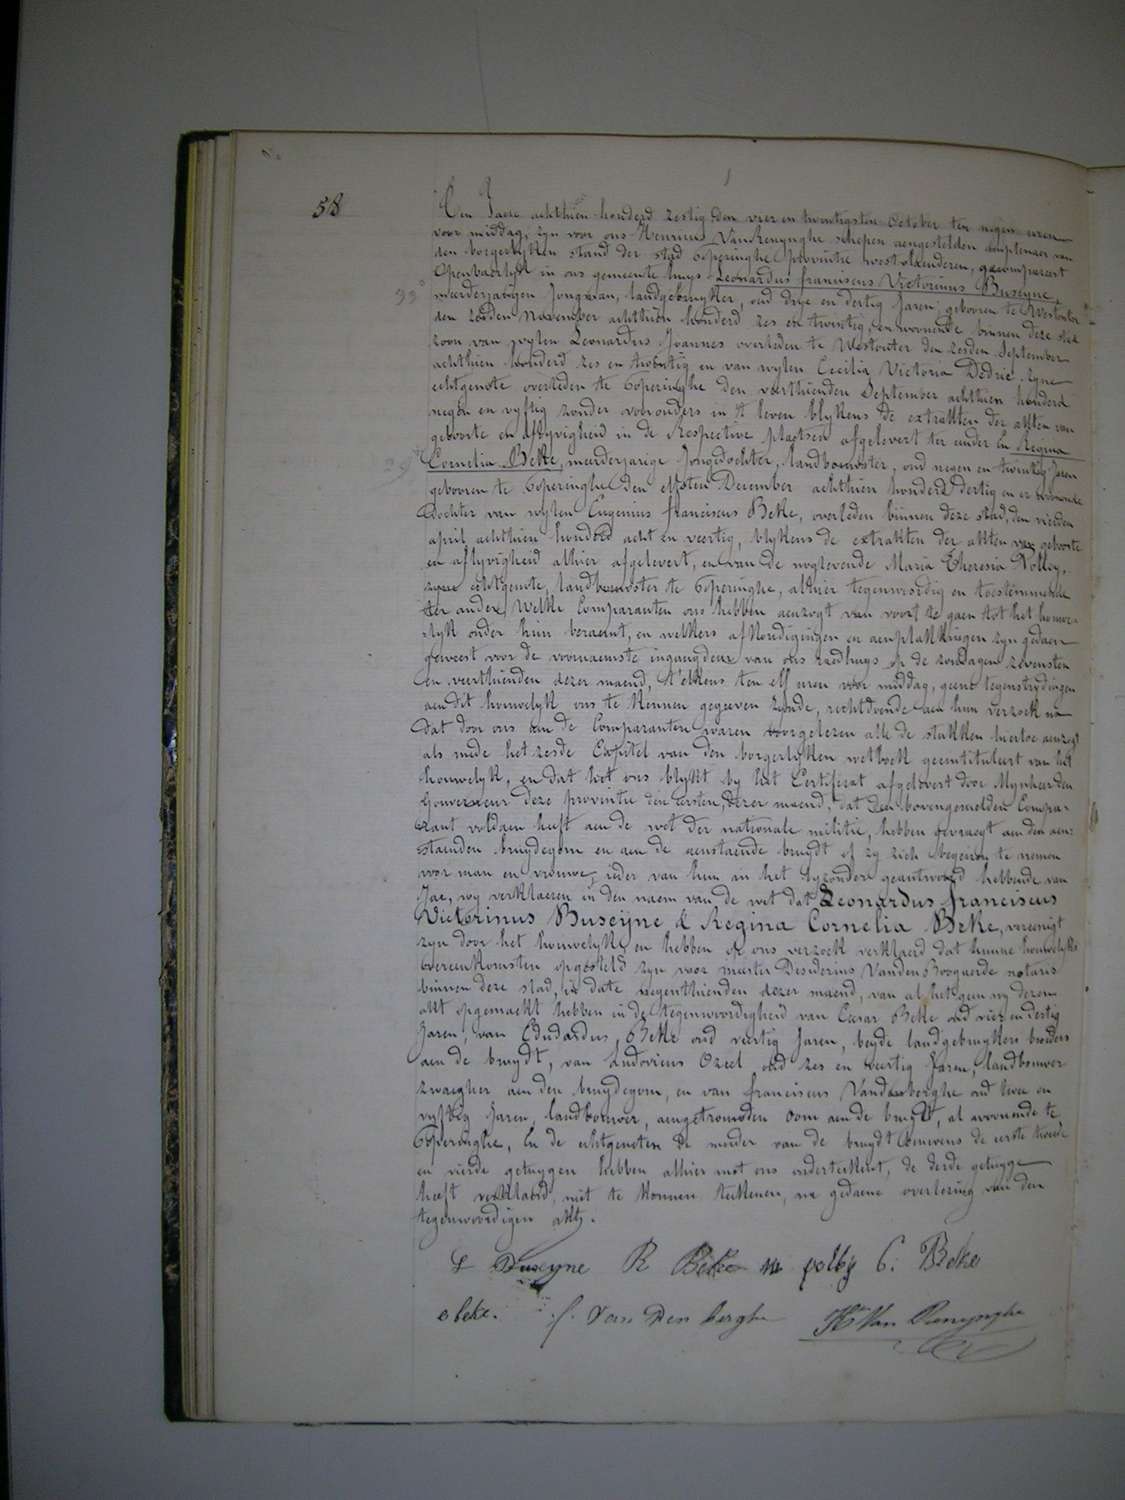 58
Den Jaere achthien honderd zestig den vier en twintigsten October ten negen uren
voor middag, zyn voor ons Henricus Vanrenynghe schepen aengestelden amptenaer van
den borgerlyken stand der stad Poperinghe provintie westvlaenderen, gecompareert
Openbaerlyk in ons gemeente huys Leonardus franciscus Victorinus Buseyne,
33
meerderjarigen Jongman, landgebruyker, oud drye en dertig Jaren, gebooren te Westouter
den zesden November achthien honderd zes en twintig, en woonende binnen deze stad
zoon van wylen Leonardus Joannes overleden te Westouter den zesden September
achthien honderd zes en twintig en van wylen Cecilia Victoria Dedrie zyne
echtgenote overleden te Poperinghe den veerthienden September achthien honderd
negen en vyftig zonder voorouders in 't leven blykens de extrakten der akten van
geboorte en aflyvigheid in de Respective plaetsen afgelevert ter ander En Regina
29
Cornelia Beke, meerderjarige Jongedochter, landbouwster, oud negen en twintig Jaren
gebooren te Poperinghe den elfsten December achthien honderd dertig en er woonende
dochter van wylen Eugenius franciscus Beke, overleden binnen deze stad, den
april achthien honderd acht en veertig, blykens de extrakten der akten van geboorte
en aflyvigheid alhier afgelevert, en van de noglevende Maria Theresia Polley,
zyne echtgenote, landbouwster te Poperinghe, alhier tegenwoordig en toestemmende
ter andere Welke Comparanten ons hebben aenzogt van voort te gaen tot het houwe-
-lyk onder hun beraemt, en welkers afkondigingen en aenplakkingen zyn gedaen
geweest voor de voornaemste ingangdeur van ons raedhuys op de zondagen zevensten
en veerthienden dezer maend, t'elkens ten elf uren voor middag, geene tegenstrydingen
aen dit houwelyk ons te kennen gegeeven zynde, rechtdoende aen hun verzoek na
dat door ons aan de Comparanten waren voorgelezen alle de stukken hiertoe aenzogt
als mede het zesde Capitel van den borgerlyken wetboek geintituleert van het
houwelyk, en dat het ons blykt by het Certificat afgelevert door Mynheer den
Gouverneur deze provintie den eersten, dezer maend, dat den bovengemelden Compa-
rant voldaen heeft aen de wet der nationale militie, hebben gevraegt aen den aen-
staenden bruydegom en aen de aenstaende bruydt of zy zich begeiren te nemen
voor man en vrouwe, ieder van hun in het byzonder geantwoord hebbende van
Jae, wy verklaeren in den naem van de wet dat Leonardus franciscus
Victorinus Buseyne & Regina Cornelia Beke, vereenigt
zyn door het houwelyk en hebben op ons verzoek verklaerd dat hunne houwelyks
overeenkomsten opgesteld zyn voor meester Desiderius VandenBoogaerde notaris
binnen deze stad, in date negenthienden dezer maend, van al hetgeen wy dezen
akt opgemaekt hebben in de tegenwoordigheid van Cesar Beke oud vier en dertig
Jaren, van Eduardus Beke oud veertig Jaren, beyde landgebruykers broeders
aen de bruydt, van Ludovicus Ozeel oud zes en veertig Jaren, landbouwer
zwaegher aen den bruydegom, en van franciscus Vandenberghe oud twee en
vyftig Jaren, landbouwer, aengetrouwden Oom aen de bruydt, al woonende te
Poperinghe, En de echtgenoten de moeder van de bruydt benevens de eerste tweede
en vierde getuygen hebben alhier met ons onderteekent, de derde getuyge
heeft verklaerd, niet te konnen teekenen, na gedaene overlezing van den
tegenwoordigen akt.
L Buseyne R Beke m polley C: Beke
e beke. f. Van Den berghe Hri Van Renynghe